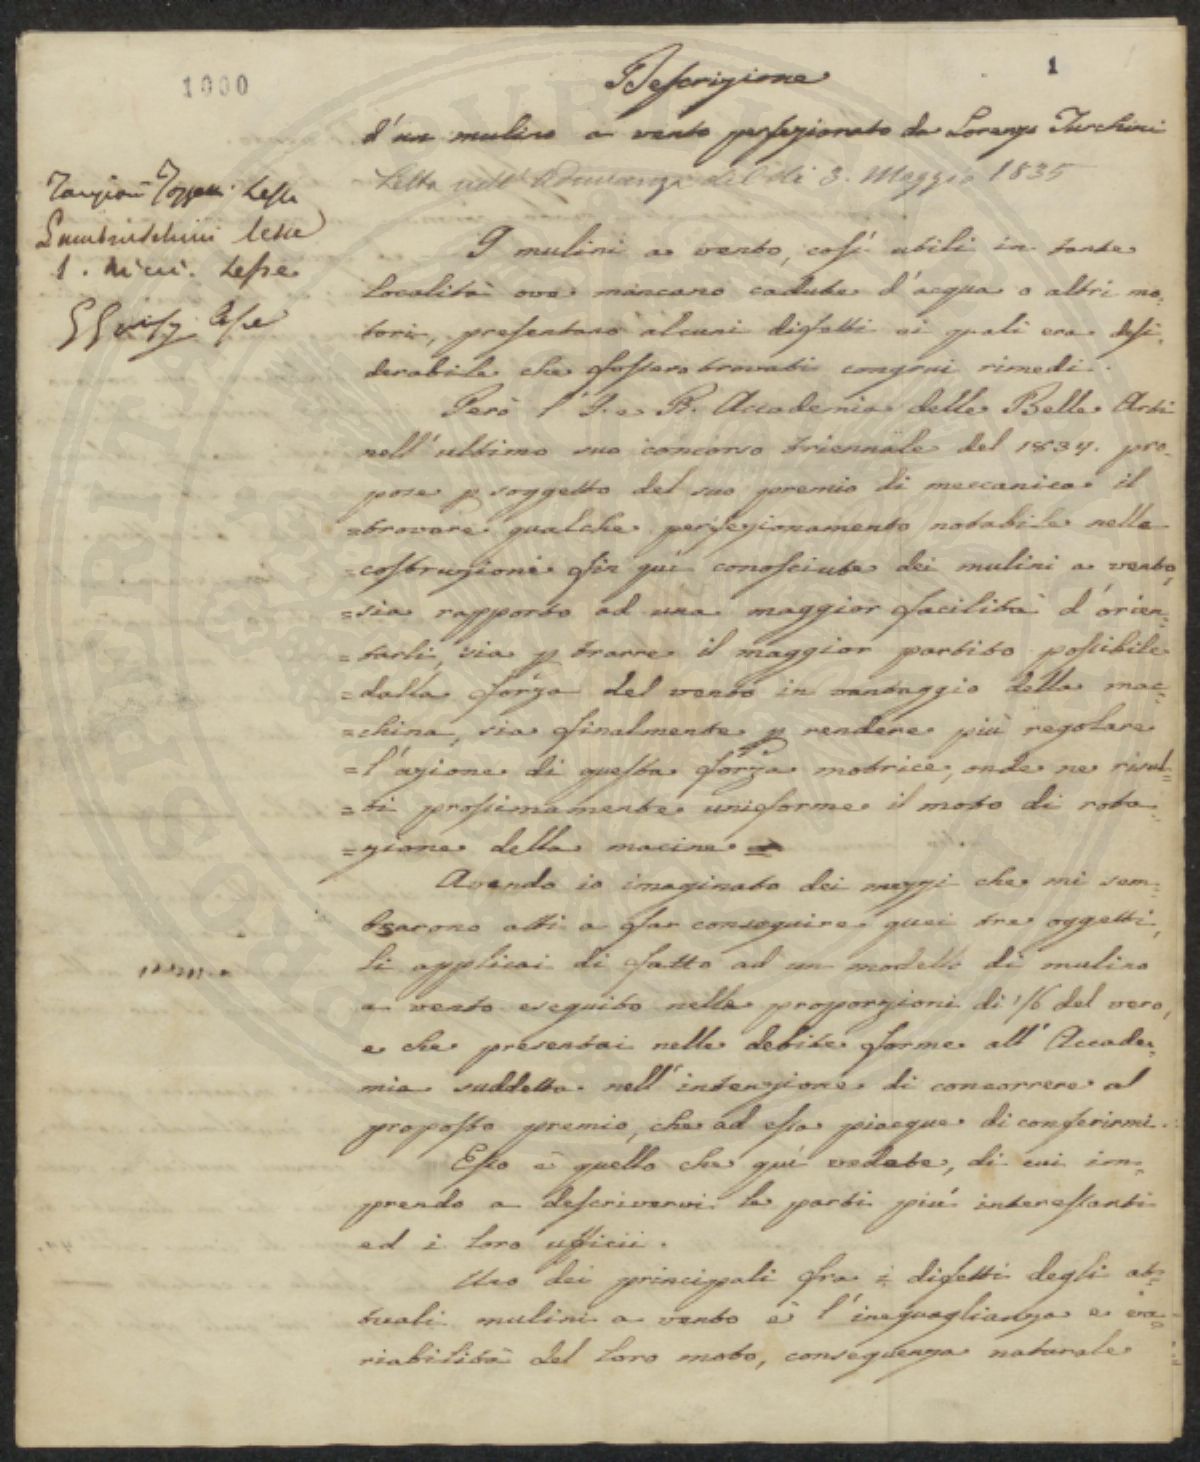 1000
1
Descrizione
d'un mulino a vento perfezionato da Lorenzo Turchini
Letta nell'Adunanza del dì 3. Maggio 1835
Targioni Tozzetti lesse
Lambruschini lesse
lesse
lesse
I mulini a vento, così utili in tante
località ove mancano cadute d'acqua o altri mo=
tori, presentano alcuni difetti ai quali era desi=
derabile che fossero trovati congrui rimedi.
Però l'I. e R. Accademia delle Belle Arti
nell'ultimo suo concorso triennale del 1834. pro=
pose p soggetto del suo premio di meccanica il
=trovare qualche perfezionamento notabile nella
=costruzione fin quì conosciuta dei mulini a vento,
=sia rapporto ad una maggior facilità d'orien=
=tarli, sia p trarre il maggior partito possibile
=dalla forza del vento in vantaggio della mac=
=china, sia finalmente p rendere più regolare
=l'azione di questa forza motrice, onde ne risul=
=ti prossimamente uniforme il moto di rota=
=zione della macine =
Avendo io imaginato dei mezzi che mi sem=
brarono atti a far conseguire quei tre oggetti,
li applicai di fatto ad un modello di mulino
a vento eseguito nelle proporzioni di 1/6 del vero,
e che presentai nelle debite forme all'Accade=
mia suddetta nell'intenzione di concorrere al
proposto premio, che ad essa piacque di conferirmi.
Esso è quello che quì vedete, di cui im=
prendo a descrivervi le parti più interessanti
ed i loro ufficii.
Uno dei principali fra i difetti degli at=
tuali mulini a vento è l'ineguaglianza e va=
riabilità del loro moto, conseguenza naturale